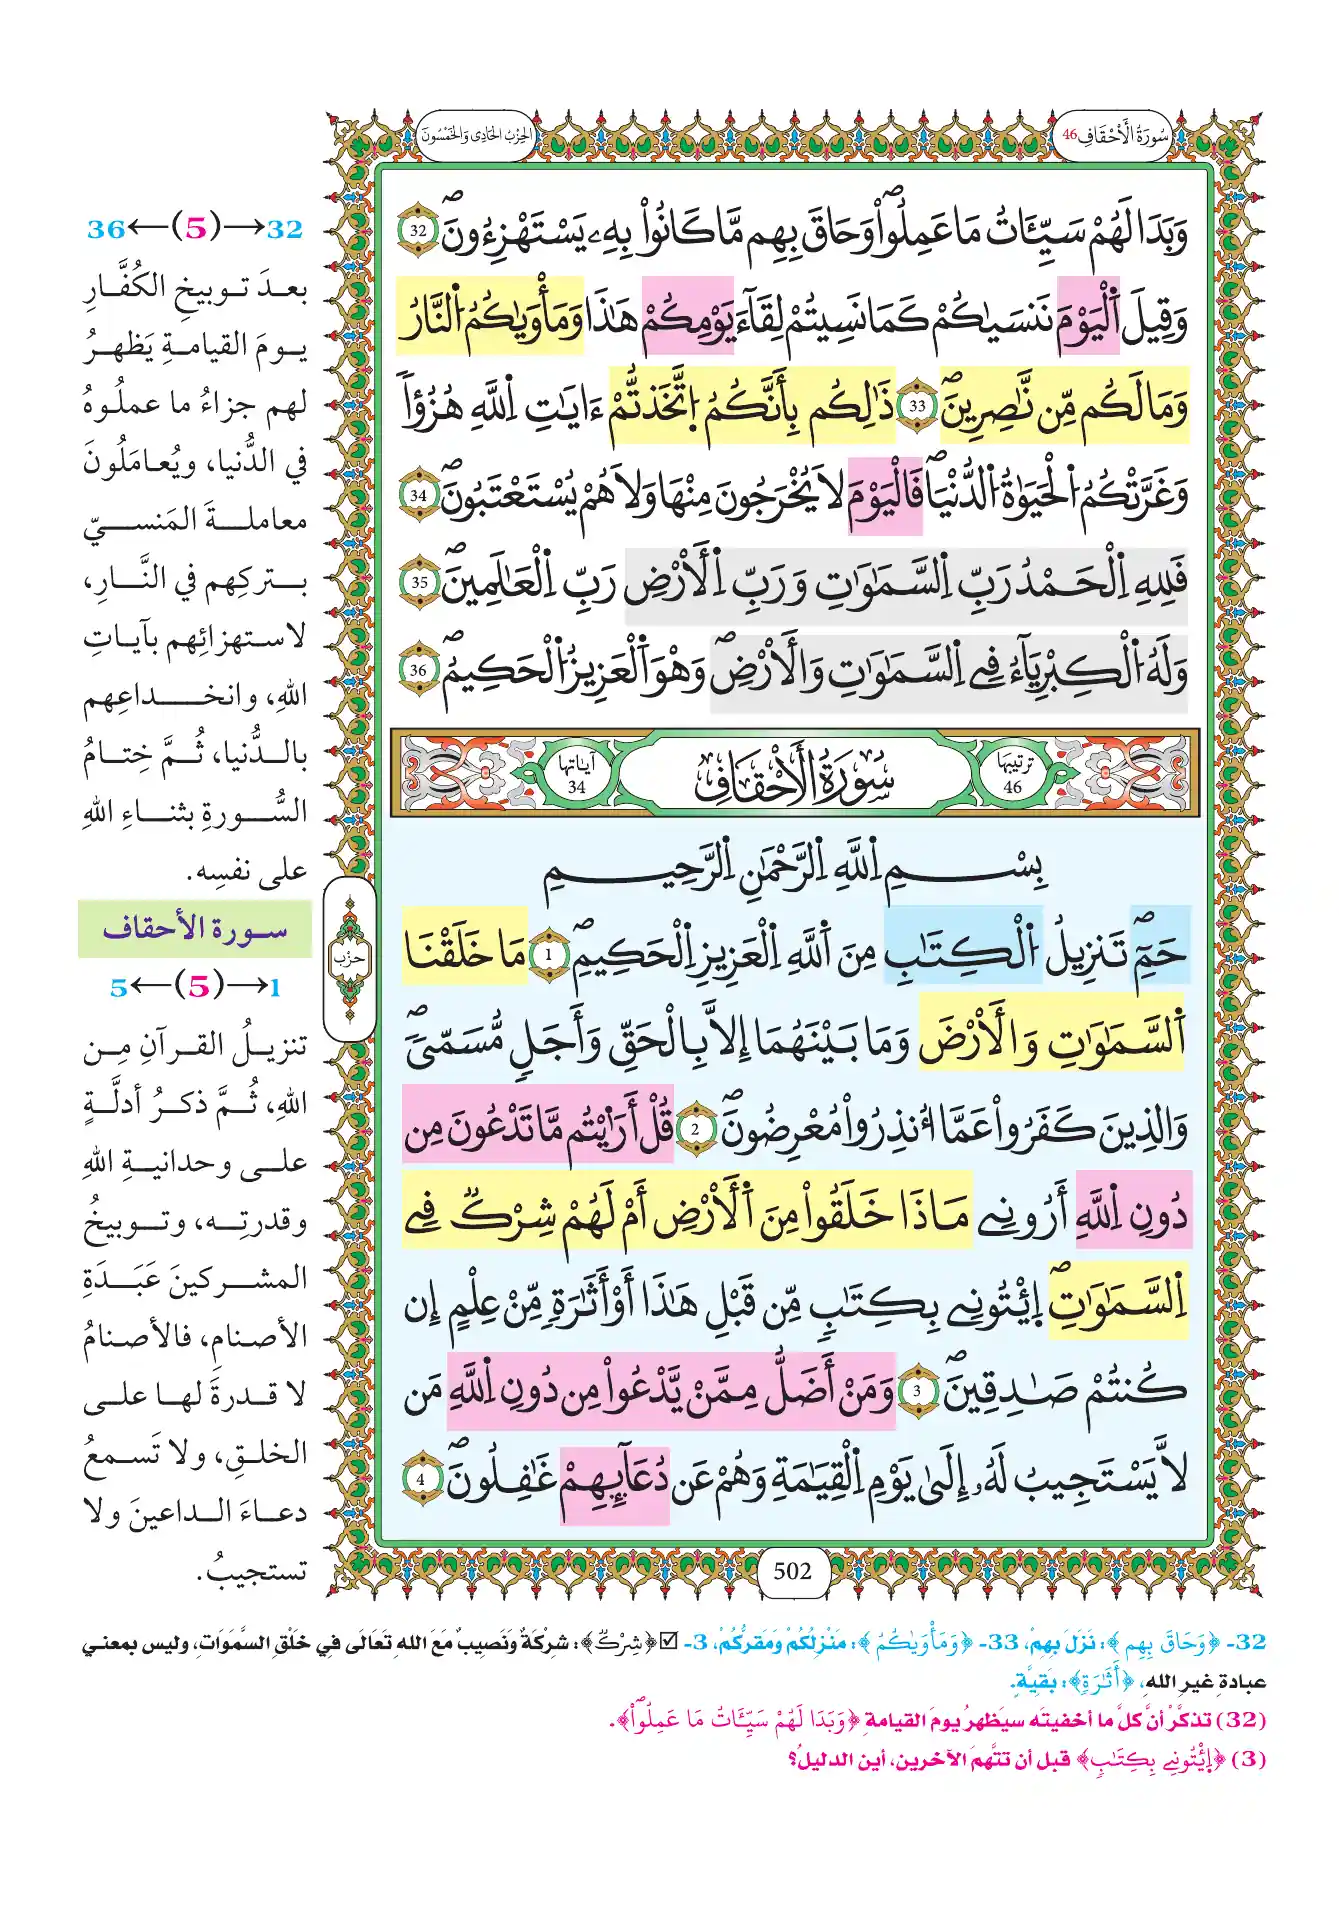 سُورَةُ الْأَحْقَافِ 46
الحِزْبُ الحَادِي وَالخَمْسُونَ
وَبَدَا لَهُمْ سَيِّـَٔاتُ مَا عَمِلُواْۖ وَحَاقَ بِهِم مَّا كَانُواْ بِهِۦ يَسْتَهْزِءُونَۖ 32
وَقِيلَ اَ۬لْيَوْمَ نَنسَيٰكُمْ كَمَا نَسِيتُمْ لِقَآءَ يَوْمِكُمْ هَٰذَا وَمَأْوَيٰكُمُ اُ۬لنَّارُ
وَمَا لَكُم مِّن نَّٰصِرِينَۖ 33 ذَٰلِكُم بِأَنَّكُمُ اُ۪تَّخَذتُّمْ ءَايَٰتِ اِ۬للَّهِ هُزُؤاٗ
وَغَرَّتْكُمُ اُ۬لْحَيَوٰةُ اُ۬لدُّنْيَاۖ فَالْيَوْمَ لَا يُخْرَجُونَ مِنْهَا وَلَا هُمْ يُسْتَعْتَبُونَۖ 34
فَلِلهِ اِ۬لْحَمْدُ رَبِّ اِ۬لسَّمَٰوَٰتِ وَرَبِّ اِ۬لْأَرْضِ رَبِّ اِ۬لْعَٰلَمِينَۖ 35
وَلَهُ اُ۬لْكِبْرِيَآءُ فِے اِ۬لسَّمَٰوَٰتِ وَالْأَرْضِۖ وَهْوَ اَ۬لْعَزِيزُ اُ۬لْحَكِيمُۖ 36
ترتيبها 46
سُورَةُ الْأَحْقَافِ
آياتها 34
بِسْمِ اِ۬للَّهِ اِ۬لرَّحْمَٰنِ اِ۬لرَّحِيمِ
حَمِٓۖ تَنزِيلُ اُ۬لْكِتَٰبِ مِنَ اَ۬للَّهِ اِ۬لْعَزِيزِ اِ۬لْحَكِيمِۖ 1 مَا خَلَقْنَا
اَ۬لسَّمَٰوَٰتِ وَالْأَرْضَ وَمَا بَيْنَهُمَا إِلَّا بِالْحَقِّ وَأَجَلٖ مُّسَمّيٗۖ
وَالذِينَ كَفَرُواْ عَمَّا أُنذِرُواْ مُعْرِضُونَۖ 2 قُلْ أَرَٰٓيْتُم مَّا تَدْعُونَ مِن
دُونِ اِ۬للَّهِ أَرُونِے مَاذَا خَلَقُواْ مِنَ اَ۬لْأَرْضِ أَمْ لَهُمْ شِرْكٞ فِے
اِ۬لسَّمَٰوَٰتِۖ اِ۪يْتُونِے بِكِتَٰبٖ مِّن قَبْلِ هَٰذَا أَوْ أَثَٰرَةٖ مِّنْ عِلْمٍ إِن
كُنتُمْ صَٰدِقِينَۖ 3 وَمَنْ أَضَلُّ مِمَّنْ يَّدْعُواْ مِن دُونِ اِ۬للَّهِ مَن
لَّا يَسْتَجِيبُ لَهُۥ إِلَيٰ يَوْمِ اِ۬لْقِيَٰمَةِ وَهُمْ عَن دُعَآئِهِمْ غَٰفِلُونَۖ 4
502
حزب
32→(5)←36
بعدَ توبيخِ الكُفَّارِ
يومَ القيامةِ يَظهرُ
لهم جزاءُ ما عملُوهُ
في الدُّنيا، ويُعامَلُونَ
معاملةَ المَنسيّ
بتركِهم في النَّارِ،
لاستهزائِهم بآياتِ
اللهِ، وانخداعِهم
بالدُّنيا، ثُمَّ خِتامُ
السُّورةِ بثناءِ اللهِ
على نفسِه.
سورة الأحقاف
1→(5)←5
تنزيلُ القرآنِ مِن
اللهِ، ثُمَّ ذكرُ أدلَّةٍ
على وحدانيةِ اللهِ
وقدرتِه، وتوبيخُ
المشركينَ عَبَدَةِ
الأصنامِ، فالأصنامُ
لا قدرةَ لها على
الخلقِ، ولا تَسمعُ
دعاءَ الداعينَ ولا
تستجيبُ.
32- ﴿وَحَاقَ بِهِم﴾: نَزَلَ بِهِمْ، 33- ﴿وَمَأْوَيٰكُمُ﴾: مَنْزِلُكُمْ وَمَقَرُّكُمْ، 3- ☑ ﴿شِرْكٞ﴾: شِرْكَةٌ وَنَصِيبٌ مَعَ اللهِ تَعَالَى فِي خَلْقِ السَّمَوَاتِ، وليس بمعنى
عبادةِ غيرِ اللهِ، ﴿أَثَٰرَةٖ﴾: بَقِيَّةٍ.
(32) تذكَّرْ أنَّ كلَّ ما أخفيتَه سيَظهرُ يومَ القيامةِ ﴿وَبَدَا لَهُمْ سَيِّـَٔاتُ مَا عَمِلُواْۖ﴾.
(3) ﴿اِ۪يْتُونِے بِكِتَٰبٖ﴾ قبل أن تتَّهمَ الآخرين، أين الدليلُ؟